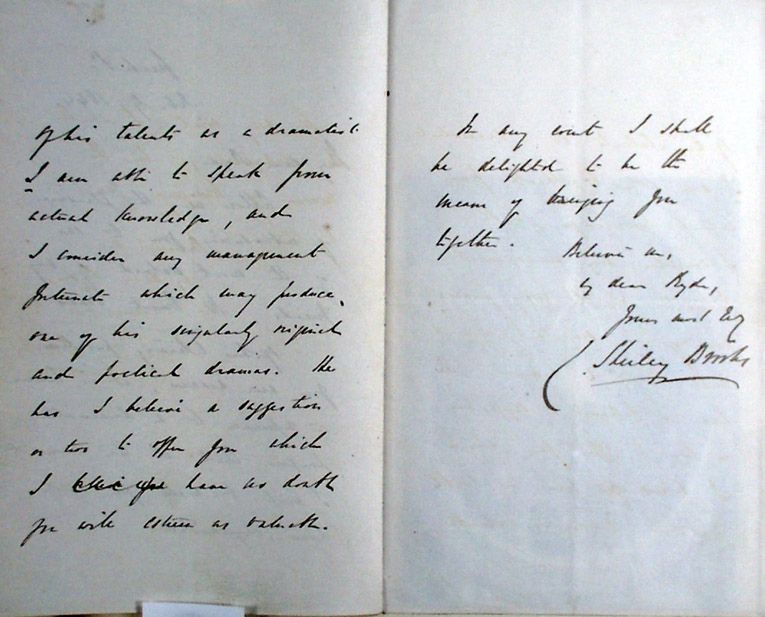 of his talents as a dramatist
I am able to speak from
actual knowledge, and
I consider any management
fortunate which may produce
one of his singularly original
and poetical dramas. He
has I believe a suggestion
or two to offer you which
I have no doubt
you will esteem as valuable.
In any event I shall
be delighted to be the
means of bringing you
together.
Believe me,
my dear Ryder,
Yours most
Shirley Brooks